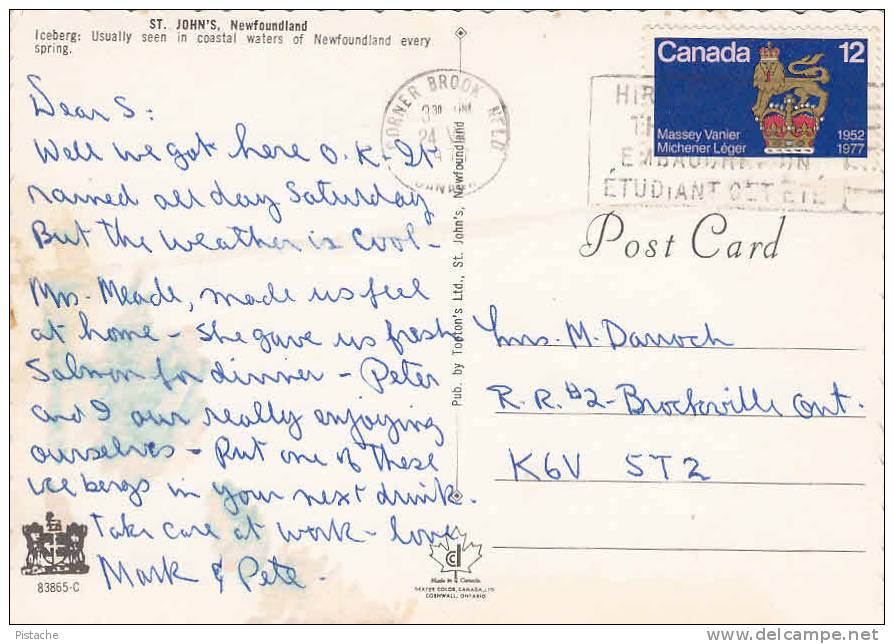 ST. JOHN'S, Newfoundland
Iceberg: Usually seen in coastal waters of Newfoundland every
spring.
Dear S:
Well we got here O.K- It
rained all day Saturday
But the weather is cool-
Mrs. Meade, made us feel
at home - She gave us fresh
Salmon for dinner - Peter
and I our really enjoying
ourselves - Put one of these
ice bergs in your next drink.
Take care at work - love
Mark & Pete -
83865-C
Pub. by Tooton's Ltd., St. John's, Newfoundland
Made in Canada
DEXTER COLOR, CANADA, LTD
CORNWALL, ONTARIO
CORNER BROOK NFLD
24
Canada 12
Massey Vanier 1952
Michener Léger 1977
EMBAUCHEZ UN
ÉTUDIANT CET ÉTÉ
Post Card
Mrs. M. Darroch
R.R. #2 - Brockville Ont.
K6V 5T2
Pistache
delcampe.net